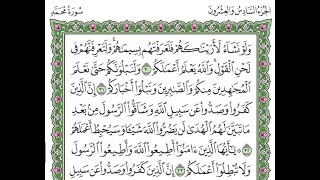 الجزء السادس والعشرون سورة محمد
وَلَوْ نَشَاءُ لَأَرَيْنَاكَهُمْ فَلَعَرَفْتَهُم بِسِيمَاهُمْ وَلَتَعْرِفَنَّهُمْ فِي
لَحْنِ الْقَوْلِ وَاللَّهُ يَعْلَمُ أَعْمَالَكُمْ ٣٠ وَلَنَبْلُوَنَّكُمْ حَتَّىٰ نَعْلَمَ
الْمُجَاهِدِينَ مِنكُمْ وَالصَّابِرِينَ وَنَبْلُوَا أَخْبَارَكُمْ ٣١ إِنَّ الَّذِينَ
كَفَرُوا وَصَدُّوا عَن سَبِيلِ اللَّهِ وَشَاقُّوا الرَّسُولَ مِن بَعْدِ
مَا تَبَيَّنَ لَهُمُ الْهُدَىٰ لَن يَضُرُّوا اللَّهَ شَيْئًا وَسَيُحْبِطُ أَعْمَالَهُمْ
٣٢ يَا أَيُّهَا الَّذِينَ آمَنُوا أَطِيعُوا اللَّهَ وَأَطِيعُوا الرَّسُولَ
وَلَا تُبْطِلُوا أَعْمَالَكُمْ ٣٣ إِنَّ الَّذِينَ كَفَرُوا وَصَدُّوا عَن سَبِيلِ